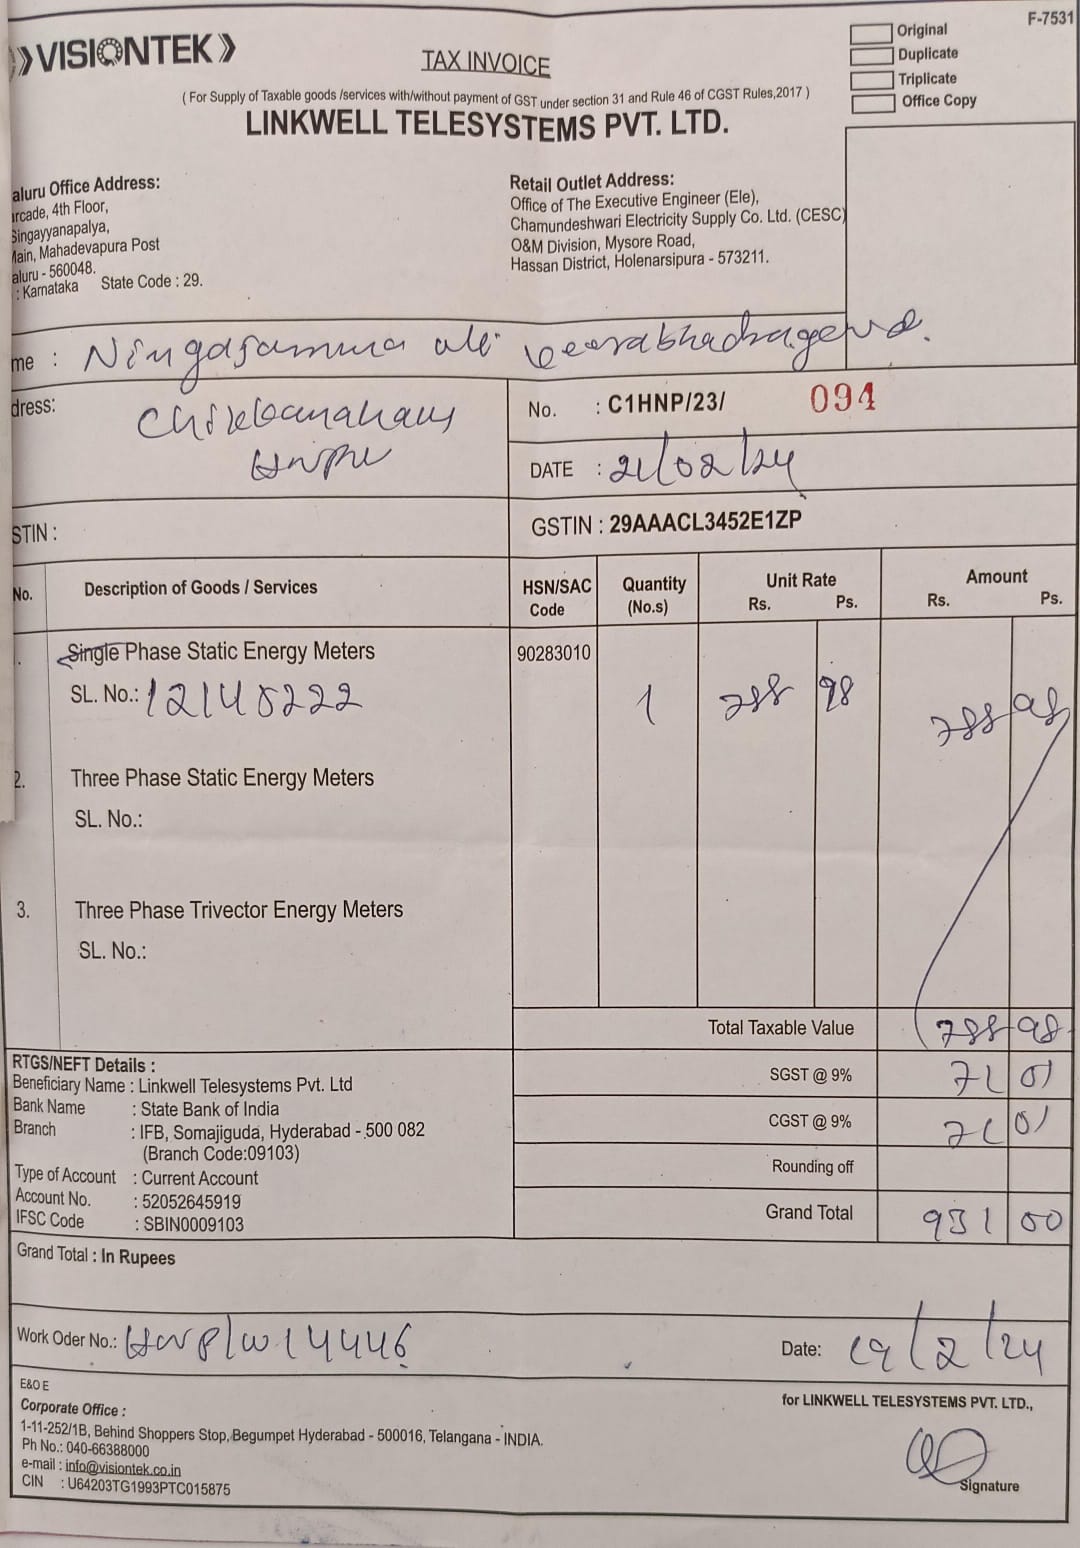 F-7531
Original
Duplicate
Triplicate
Office Copy
VISIONTEK
TAX INVOICE
( For Supply of Taxable goods /services with/without payment of GST under section 31 and Rule 46 of CGST Rules,2017 )
LINKWELL TELESYSTEMS PVT. LTD.
aluru Office Address:
rcade, 4th Floor,
Singayyanapalya,
Main, Mahadevapura Post
aluru - 560048.
: Karnataka State Code : 29.
Retail Outlet Address:
Office of The Executive Engineer (Ele),
Chamundeshwari Electricity Supply Co. Ltd. (CESC)
O&M Division, Mysore Road,
Hassan District, Holenarsipura - 573211.
me :
dress:
No. : C1HNP/23/ 094
DATE : 21/02/24
STIN :
GSTIN : 29AAACL3452E1ZP
No. Description of Goods / Services HSN/SAC Code Quantity (No.s) Unit Rate Rs. Ps. Amount Rs. Ps.
Single Phase Static Energy Meters 90283010
SL. No.: 12140222 1 788 98 788 98
2. Three Phase Static Energy Meters
SL. No.:
3. Three Phase Trivector Energy Meters
SL. No.:
Total Taxable Value 788 98
SGST @ 9% 71 01
CGST @ 9% 71 01
Rounding off
Grand Total 931 00
RTGS/NEFT Details :
Beneficiary Name : Linkwell Telesystems Pvt. Ltd
Bank Name : State Bank of India
Branch : IFB, Somajiguda, Hyderabad - 500 082
(Branch Code:09103)
Type of Account : Current Account
Account No. : 52052645919
IFSC Code : SBIN0009103
Grand Total : In Rupees
Work Oder No.:
Date: 19/2/24
E&O E
Corporate Office :
1-11-252/1B, Behind Shoppers Stop, Begumpet Hyderabad - 500016, Telangana - INDIA.
Ph No.: 040-66388000
e-mail : info@visiontek.co.in
CIN : U64203TG1993PTC015875
for LINKWELL TELESYSTEMS PVT. LTD.,
Signature